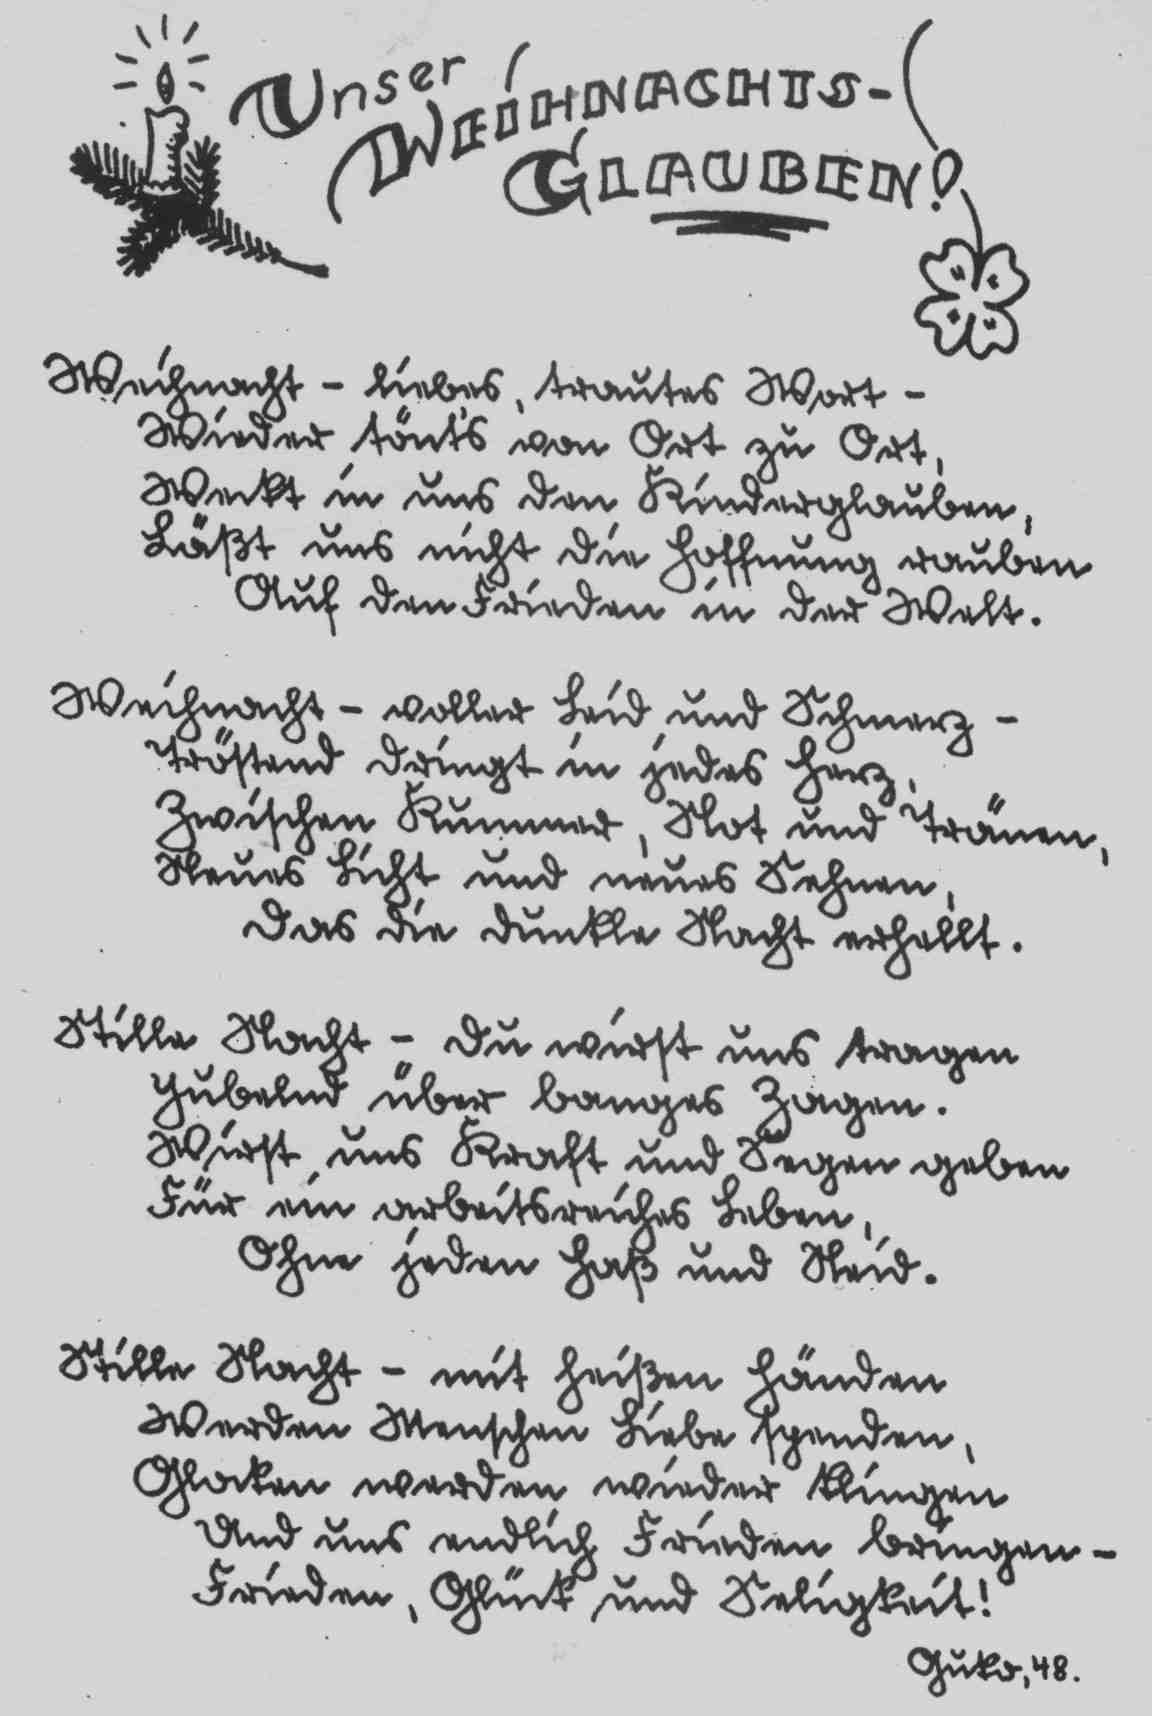 Unser
WEIHNACHTS-
GLAUBEN!
Weihnacht – liebes, trautes Wort –
Wieder tönt's von Ort zu Ort,
Weckt in uns den Kinderglauben,
Läßt uns nicht die Hoffnung rauben
Auf den Frieden in der Welt.
Weihnacht – voller Leid und Schmerz –
Tröstend dringt in jedes Herz,
Zwischen Kummer, Not und Tränen,
Neues Licht und neues Sehnen,
Das die dunkle Nacht erhellt.
Stille Nacht – Du wirst uns tragen
Jubelnd über banges Zagen.
Wirst uns Kraft und Segen geben
Für ein arbeitsreiches Leben,
Ohne jeden Haß und Neid.
Stille Nacht – mit heißen Händen
Werden Menschen Liebe spenden,
Glocken werden wieder klingen
Und uns endlich Frieden bringen –
Frieden, Glück und Seligkeit!
Guko, 48.